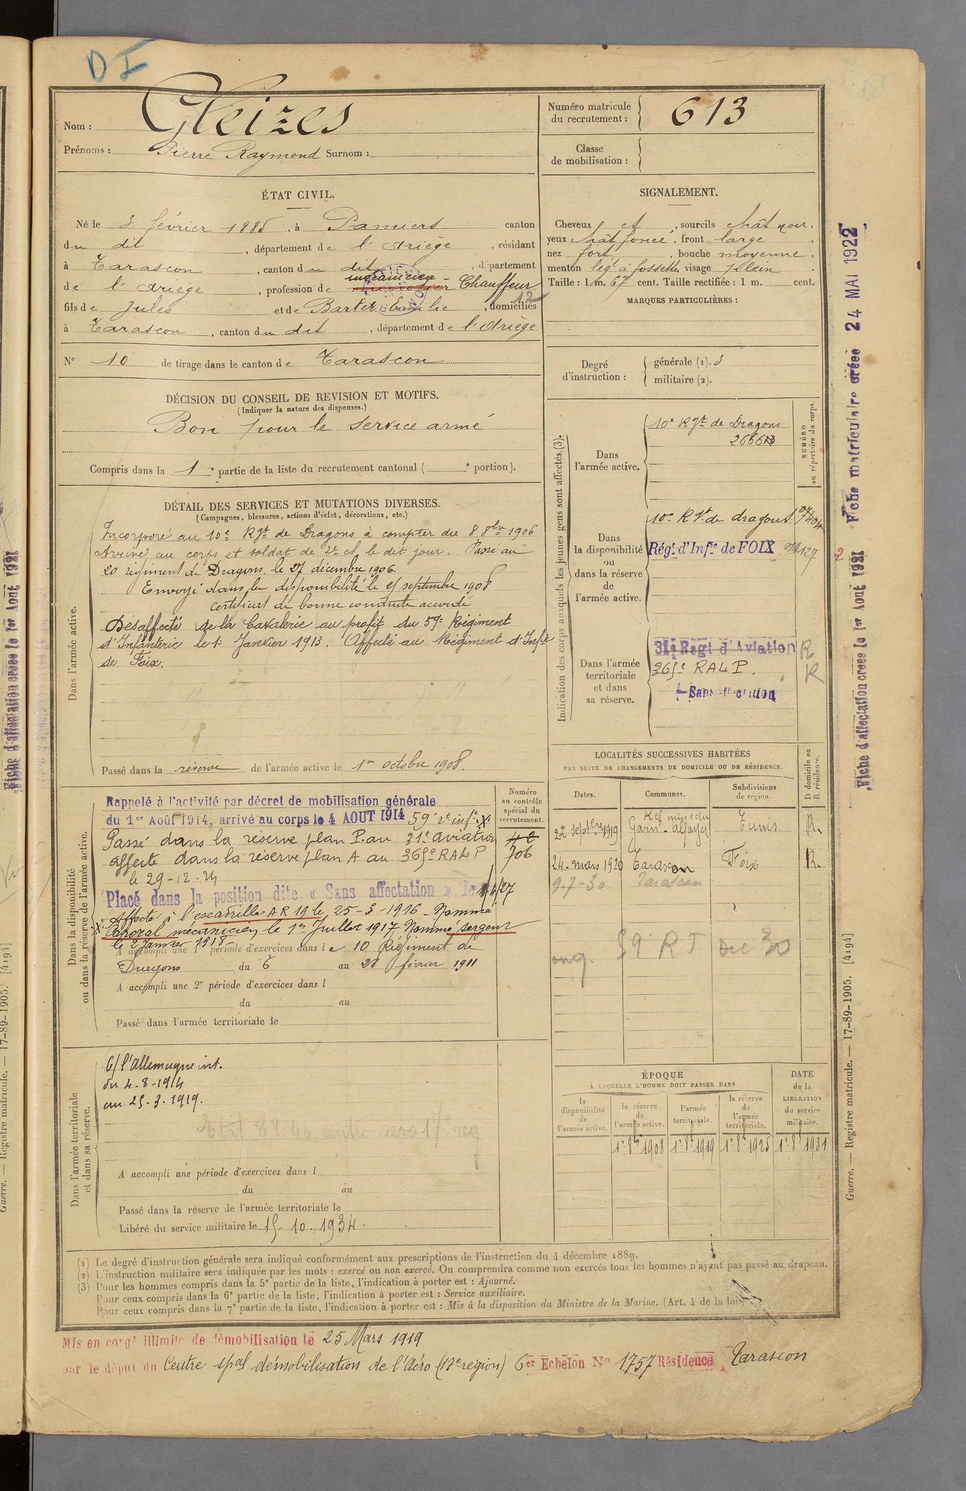 D I
Nom : Gleizes
Prénoms : Pierre Raymond Surnom :
Numéro matricule du recrutement : 613
Classe de mobilisation :
ÉTAT CIVIL.
Né le 3 février 1885, à Pamiers canton
du dit, département de l'Ariège, résidant
à Tarascon, canton du dit, département
de l'Ariège, profession de mécanicien - Chauffeur
fils de Jules et de Barter Emilie, domiciliés
à Tarascon, canton du dit, département de l'Ariège
N° 10 de tirage dans le canton de Tarascon
SIGNALEMENT.
Cheveux et, sourcils chât noir,
yeux chât foncé, front large,
nez fort, bouche moyenne,
menton lég à fossette visage plein
Taille : 1 m. 67 cent. Taille rectifiée : 1 m. cent.
MARQUES PARTICULIÈRES :
Degré d'instruction : générale (1). 3
militaire (2).
DÉCISION DU CONSEIL DE REVISION ET MOTIFS.
(Indiquer la nature des dispenses.)
Bon pour le service armé
Compris dans la 1e partie de la liste du recrutement cantonal ( e portion).
DÉTAIL DES SERVICES ET MUTATIONS DIVERSES.
(Campagnes, blessures, actions d'éclat, décorations, etc.)
Dans l'armée active.
Incorporé au 10e Rgt de Dragons à compter du 8 8bre 1906
Arrivé au corps et soldat de 2e cl. le dit jour. Passé au
20 régiment de Dragons le 27 décembre 1906
Envoyé dans la disponibilité le 25 septembre 1908
certificat de bonne conduite accordé
Désaffecté de la Cavalerie au profit du 59e Régiment
d'Infanterie le 1er Janvier 1913. Affecté au Régiment d'Infie
de Foix.
Passé dans la réserve de l'armée active le 1er octobre 1908.
Indication des corps auxquels les jeunes gens sont affectés.(3).
NUMÉRO au répertoire du corps.
Dans l'armée active.
10e Rgt de Dragons
Dans la disponibilité ou dans la réserve de l'armée active.
10e Rgt de dragons
Régt d'Infie de FOIX
Dans l'armée territoriale et dans sa réserve.
31e Regt d'Aviation R
365e RALP. R
Sans affectation
Dans la disponibilité ou dans la réserve de l'armée active.
Numéro au contrôle spécial du recrutement.
Rappelé à l'activité par décret de mobilisation générale
du 1er Août 1914, arrivé au corps le 4 AOUT 1914 59e d'inf. X
Passé dans la réserve plan P. au 31e aviation
affecté dans la réserve plan A au 365e RALP 706
le 29-12-24
Placé dans la position dite « Sans affectation » le
X Affecté à l'escadrille AR 19 le 25-3-1916 - Nommé
Caporal mécanicien le 1er Juillet 1917 Nommé sergent
le 2 Janvier 1918
A accompli une 1e période d'exercices dans le 10 Régiment de
Dragons du 6 au 28 février 1911
A accompli une 2e période d'exercices dans l
du au
Passé dans l'armée territoriale le
LOCALITÉS SUCCESSIVES HABITÉES
PAR SUITE DE CHANGEMENTS DE DOMICILE OU DE RÉSIDENCE.
Dates. Communes. Subdivisions de région. D domicile ou R résidence.
22 septembre 1919 Tunis R.
24-mars 1920 Tarascon Foix R
9-7-30 Tarascon
59 RI Dec 30
Dans l'armée territoriale et dans sa réserve.
C/ l'Allemagne int.
du 4-8-1914
au 25-3-1919.
A accompli une période d'exercices dans l
du au
Passé dans la réserve de l'armée territoriale le
Libéré du service militaire le 15-10-1934.
ÉPOQUE
À LAQUELLE L'HOMME DOIT PASSER DANS
la disponibilité de l'armée active. la réserve de l'armée active. l'armée territoriale. la réserve de l'armée territoriale.
DATE de la LIBÉRATION du service militaire.
1er 8bre 1908 1er 8bre 1919 1er 8bre 1925 1er 8bre 1931
(1) Le degré d'instruction générale sera indiqué conformément aux prescriptions de l'instruction du 4 décembre 1889.
(2) L'instruction militaire sera indiquée par les mots : exercé ou non exercé. On comprendra comme non exercés tous les hommes n'ayant pas passé au drapeau.
(3) Pour les hommes compris dans la 5e partie de la liste, l'indication à porter est : Ajourné.
Pour ceux compris dans la 6e partie de la liste, l'indication à porter est : Service auxiliaire.
Pour ceux compris dans la 7e partie de la liste, l'indication à porter est : Mis à la disposition du Ministre de la Marine. (Art. 4 de la loi)
Mis en congé illimité de démobilisation le 25 Mars 1919
par le dépôt du Centre spal démobilisation de l'Aéro (17e région) 6er Echelon N° 1757 Résidence Tarascon
Fiche matriculaire créée 24 MAI 1922
Fiche d'affectation créée le 1er Août 1921
Guerre. — Registre matricule. — 17-89-1905. [4194]
Fiche d'affectation créée le 1er Août 1921
Guerre. — Registre matricule. — 17-89-1905. [4194]